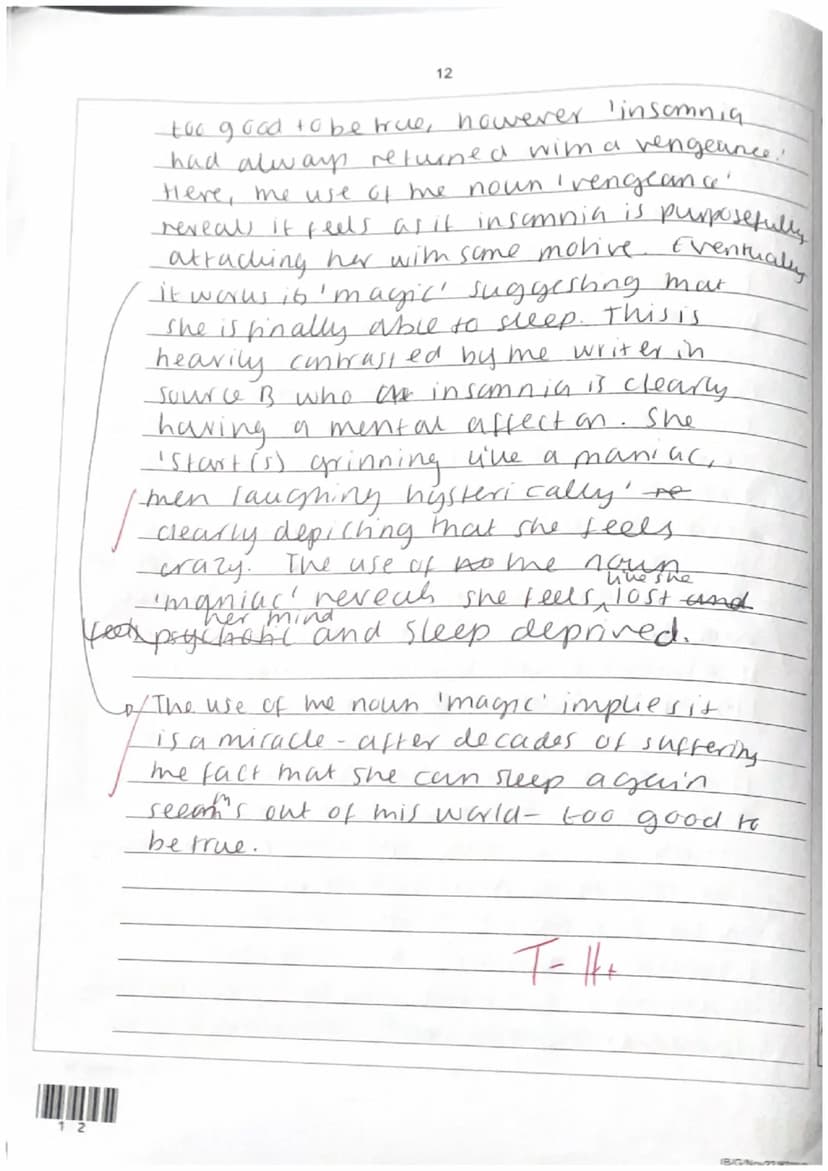 12
too good to be true, however 'insomnia
had always returned with a vengeance.'
Here, the use of the noun 'vengeance'
reveals it feels as if insomnia is purposefully
attacking her with some motive. Eventually
it works its 'magic' suggesting that
she is finally able to sleep. This is
heavily contrasted by the writer in
source B who insomnia is clearly
having a mental affect on. She
'start(s) grinning like a maniac,
then laughing hysterically'
clearly depicting that she feels
crazy. The use of the noun
like she
'maniac' reveals she feels lost and
her mind
feels psychotic and sleep deprived.
The use of the noun 'magic' implies it
is a miracle - after decades of suffering
the fact that she can sleep again
seems out of this world - too good to
be true.
1 2